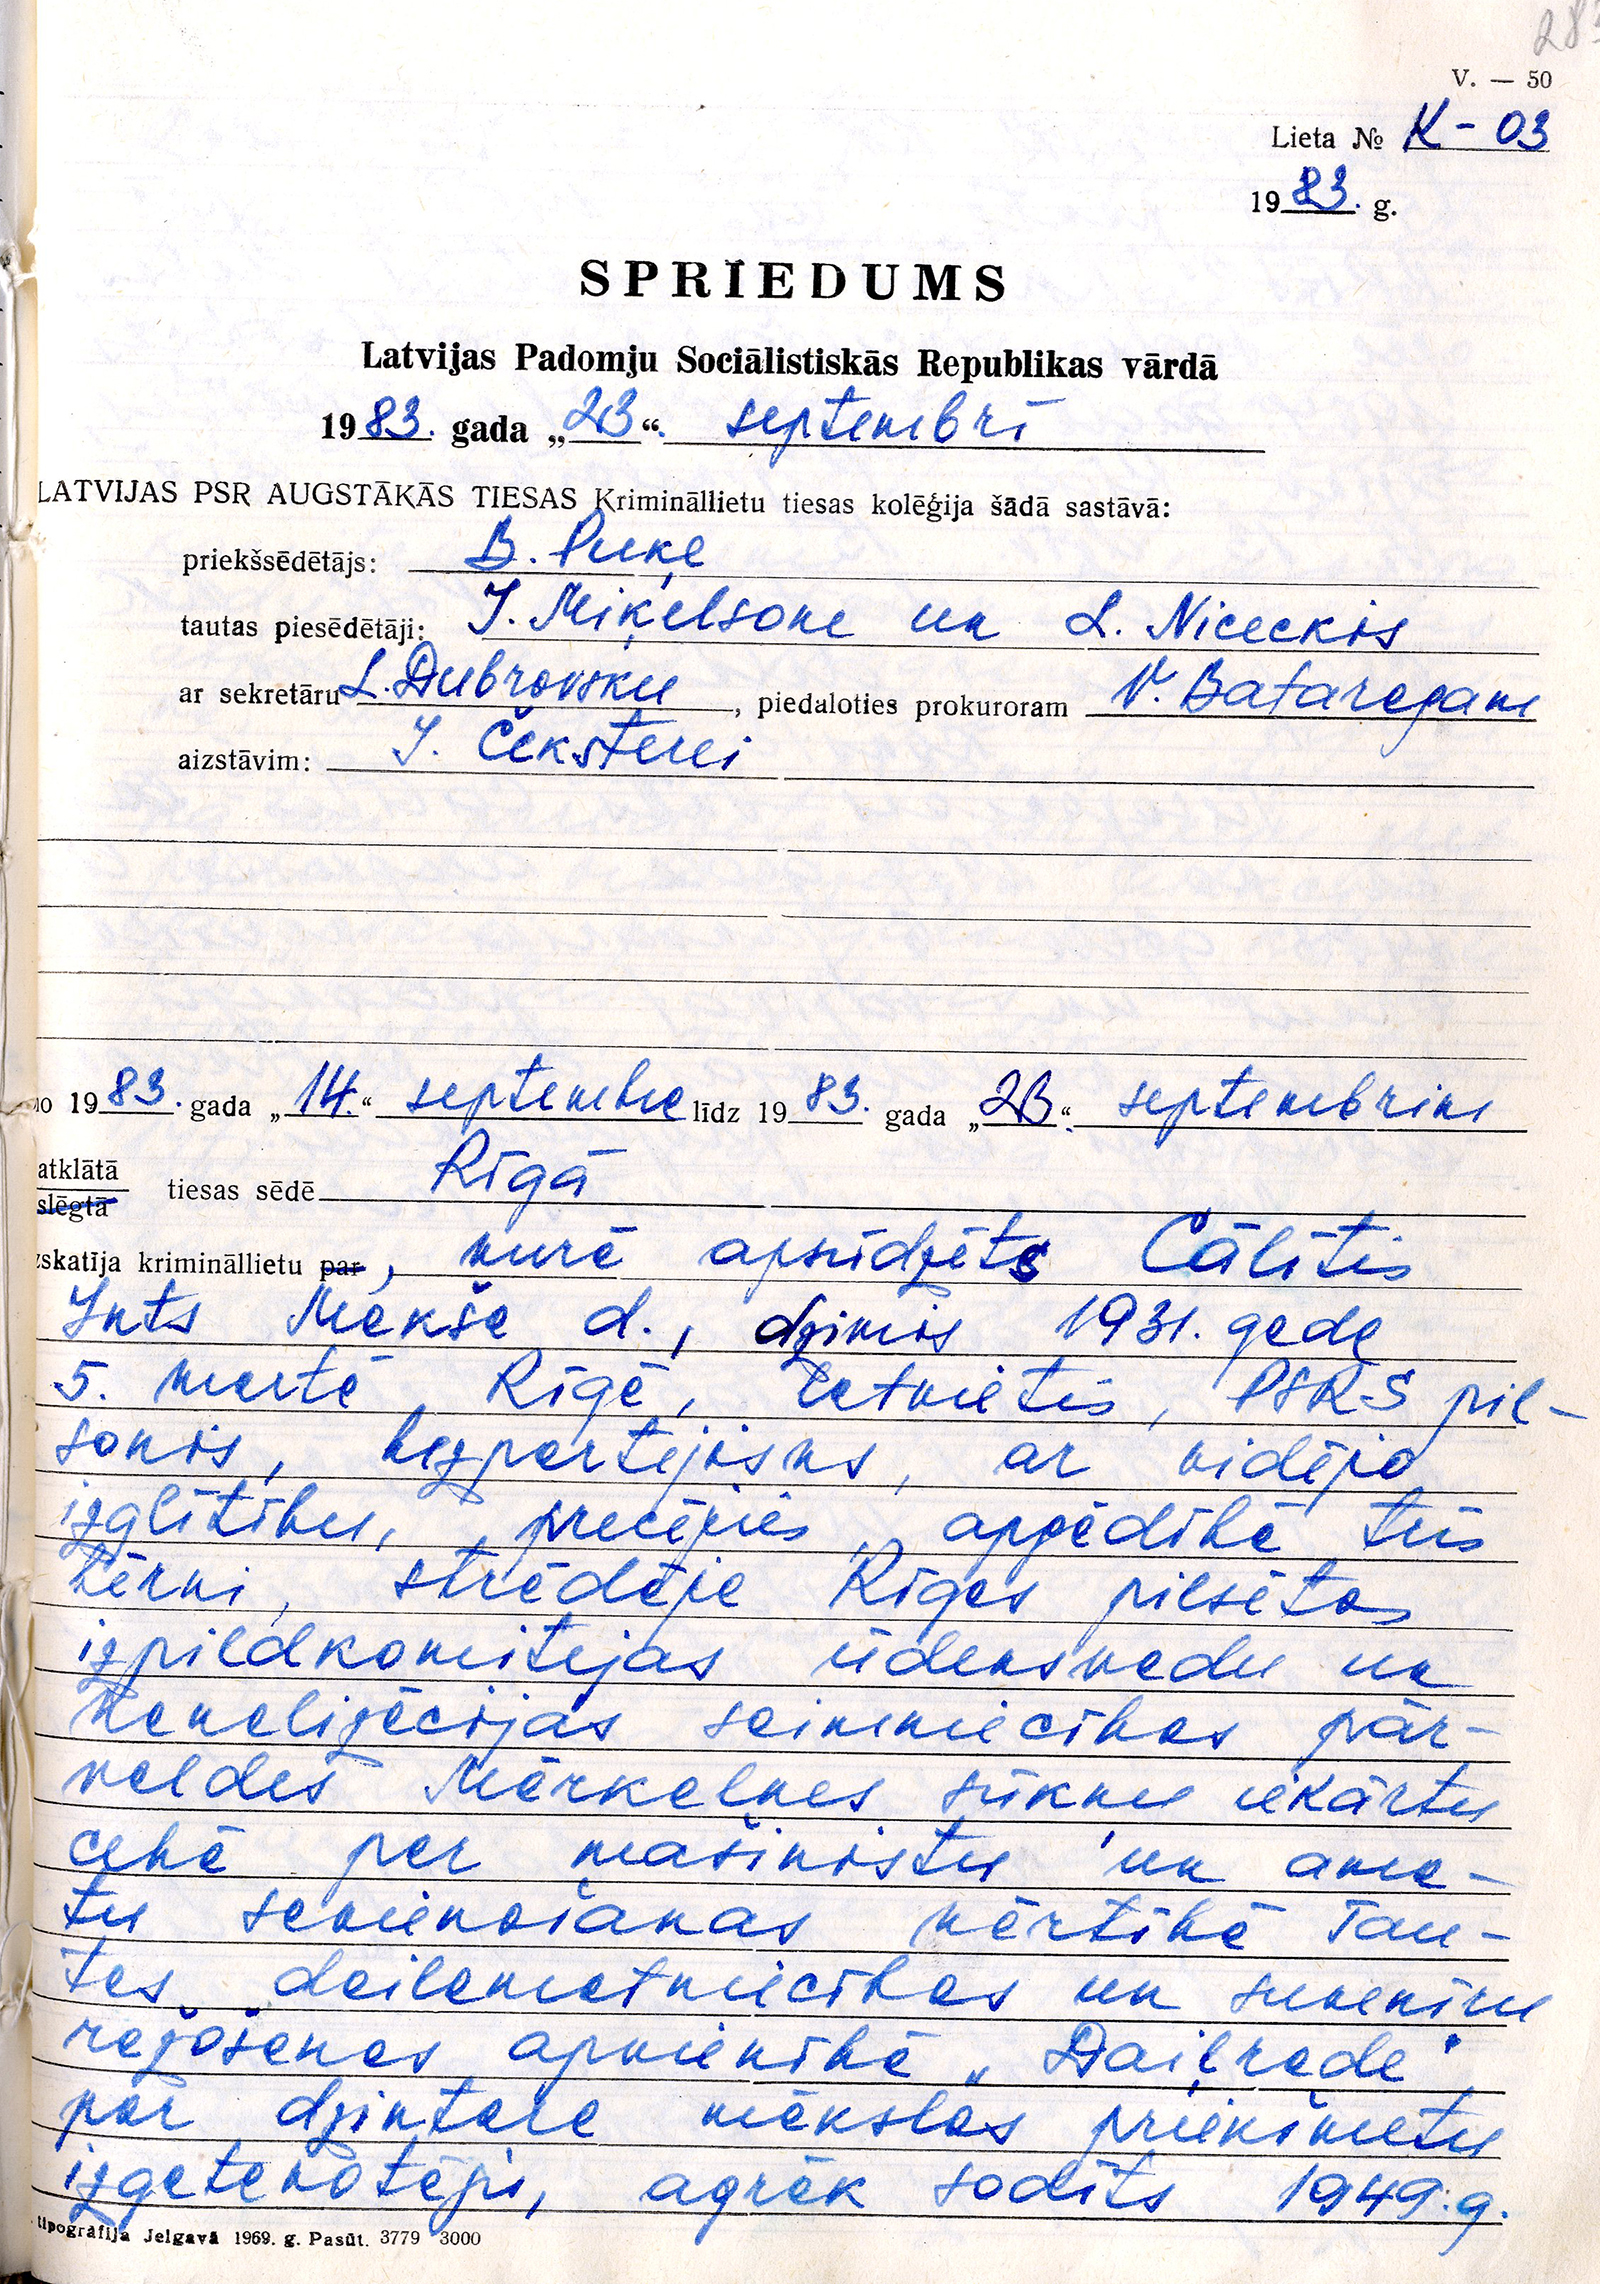 28
V. — 50
Lieta № K-03
1983. g.
SPRIEDUMS
Latvijas Padomju Sociālistiskās Republikas vārdā
1983. gada „23“. septembrī
LATVIJAS PSR AUGSTĀKĀS TIESAS Krimināllietu tiesas kolēģija šādā sastāvā:
priekšsēdētājs: B. Puķe
tautas piesēdētāji: I. Miķelsone un L. Niceckis
ar sekretāru L. Dubrovsku, piedaloties prokuroram V. Bataragam
aizstāvim: I. Čeksterei
no 1983. gada „14.“ septembra līdz 1983. gada „23“. septembrim
atklātā
slēgtā tiesas sēdē Rīgā
zskatīja krimināllietu par, kurā apsūdzēts Cālītis
Ints Mākša d., dzimis 1931. gada
5. martā Rīgā, latvietis, PSRS pil-
sonis, bezpartejisks, ar vidējo
izglītību, precējies, apgādībā trīs
bērni, strādāja Rīgas pilsētas
izpildkomitejas ūdensvadu un
kanalizācijas saimniecības pār-
valdes sūkņu iekārtu
cehā par mašīnistu un ama-
tu savienošanas kārtībā Tau-
tas daiļamatniecības un suvenīru
ražošanas apvienībā „Daiļrade“
par dzintara mākslas priekšmetu
izgatavotāju, agrāk sodīts 1949. g.
tipogrāfija Jelgavā 1969. g. Pasūt. 3779 3000